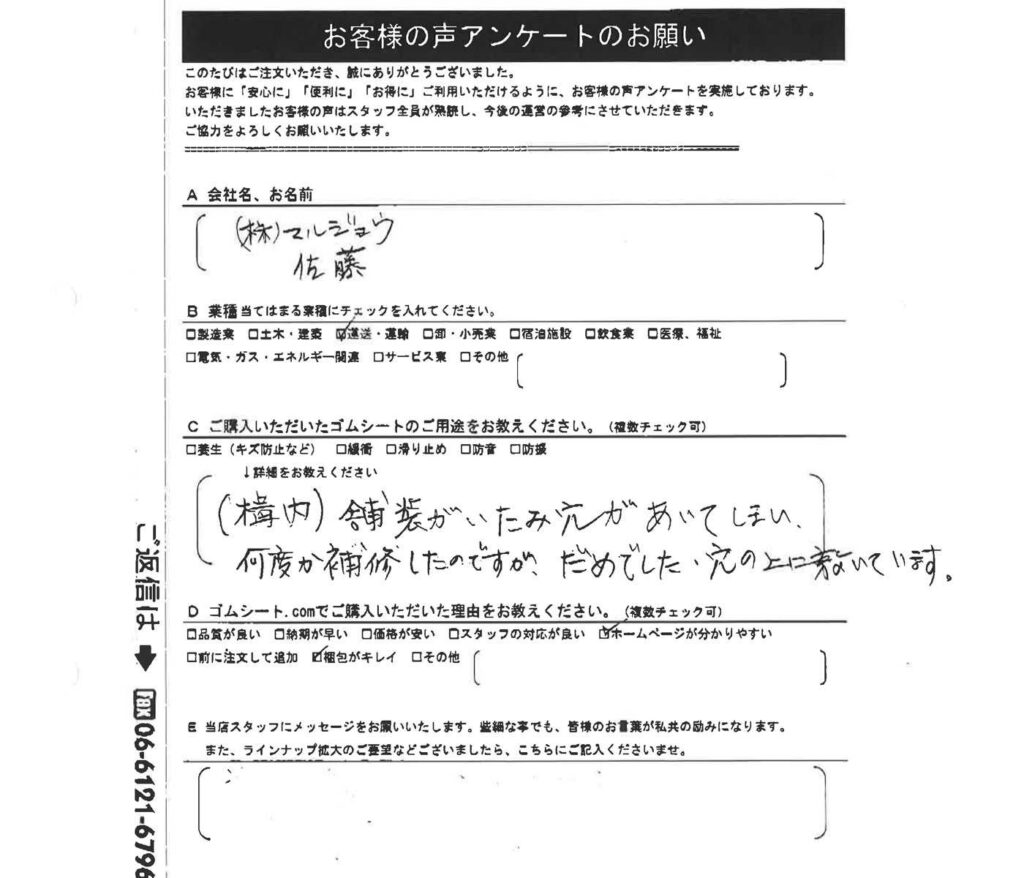 お客様の声アンケートのお願い
このたびはご注文いただき、誠にありがとうございました。
お客様に「安心に」「便利に」「お得に」ご利用いただけるように、お客様の声アンケートを実施しております。
いただきましたお客様の声はスタッフ全員が熟読し、今後の運営の参考にさせていただきます。
ご協力をよろしくお願いいたします。
A 会社名、お名前
(株)マルジョウ
佐藤
B 業種当てはまる業種にチェックを入れてください。
□製造業 □土木・建築 ☑運送・運輸 □卸・小売業 □宿泊施設 □飲食業 □医療、福祉
□電気・ガス・エネルギー関連 □サービス業 □その他
C ご購入いただいたゴムシートのご用途をお教えください。(複数チェック可)
□養生(キズ防止など) □緩衝 □滑り止め □防音 □防振
↓詳細をお教えください
(構内)舗装がいたみ穴があいてしまい、
何度か補修したのですが、だめでした、穴の上に敷いています。
D ゴムシート.comでご購入いただいた理由をお教えください。(複数チェック可)
□品質が良い □納期が早い □価格が安い □スタッフの対応が良い ☑ホームページが分かりやすい
□前に注文して追加 ☑梱包がキレイ □その他
E 当店スタッフにメッセージをお願いいたします。些細な事でも、皆様のお言葉が私共の励みになります。
また、ラインナップ拡大のご要望などございましたら、こちらにご記入くださいませ。
ご返信は➡fax06-6121-6796